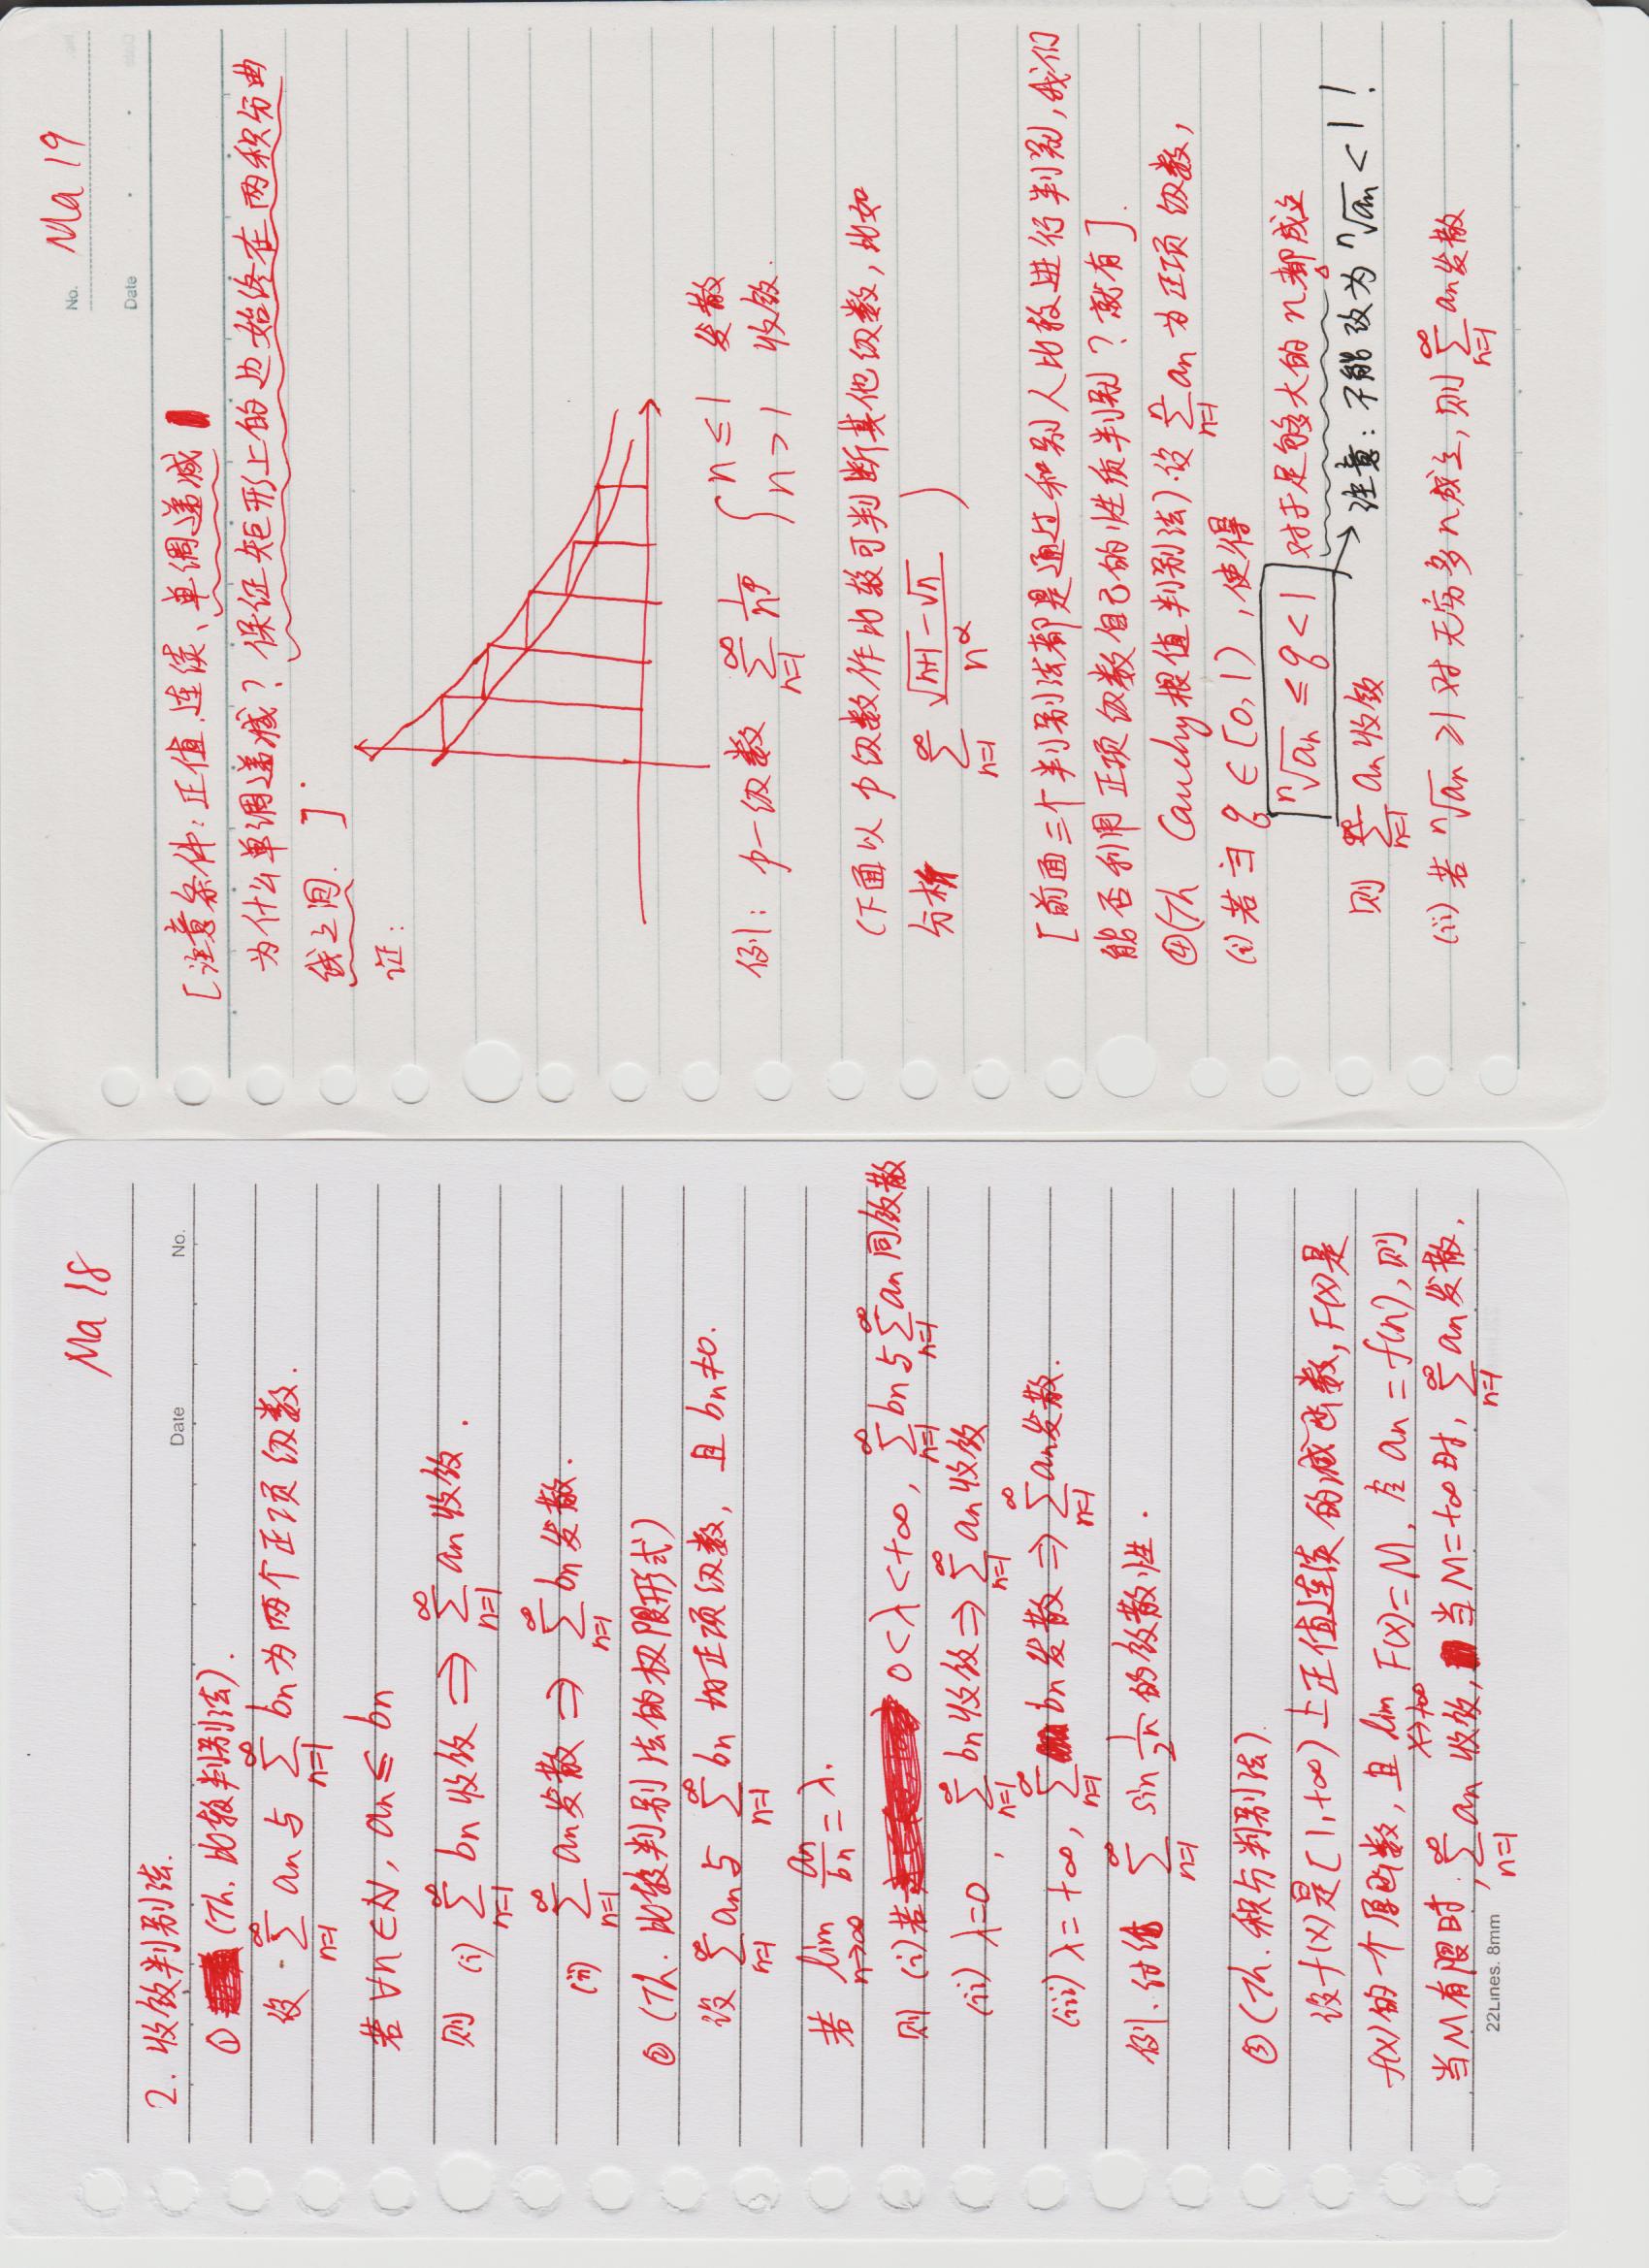 Ma 18
2. 收敛判别法.
Date No.
① (Th. 比较判别法).
设 ∑_{n=1}^{∞} an 与 ∑_{n=1}^{∞} bn 为两个正项级数.
若 ∀n∈N, an ≤ bn
则 (i) ∑_{n=1}^{∞} bn 收敛 ⇒ ∑_{n=1}^{∞} an 收敛.
(ii) ∑_{n=1}^{∞} an 发散 ⇒ ∑_{n=1}^{∞} bn 发散.
② (Th. 比较判别法的极限形式)
设 ∑_{n=1}^{∞} an 与 ∑_{n=1}^{∞} bn 均正项级数, 且 bn≠0.
若 lim_{n→∞} an/bn = λ.
则 (i) 若 0<λ<+∞, ∑_{n=1}^{∞} bn 与 ∑_{n=1}^{∞} an 同敛散
(ii) λ=0, ∑_{n=1}^{∞} bn 收敛 ⇒ ∑_{n=1}^{∞} an 收敛
(iii) λ=+∞, ∑_{n=1}^{∞} bn 发散 ⇒ ∑_{n=1}^{∞} an 发散.
例. 讨论 ∑_{n=1}^{∞} sin 1/2n 的敛散性.
③ (Th. 积分判别法).
设 f(x) 是 [1,+∞) 上正值连续的减函数, F(x) 是
f(x) 的一个原函数, 且 lim_{x→+∞} F(x)=M, 令 an = f(n), 则
当 M 有限时, ∑_{n=1}^{∞} an 收敛, 当 M=+∞ 时, ∑_{n=1}^{∞} an 发散.
22Lines. 8mm
No. Ma 19
Date
[注意条件: 正值、连续、单调递减
为什么单调递减? 保证矩形上的边始终在两积分曲
线之间. ]
证:
例: p-级数 ∑_{n=1}^{∞} 1/n^p { n ≤ 1 发散
n > 1 收敛.
(下面以 p 级数作比较可判断其他级数, 比如
分析 ∑_{n=1}^{∞} (√(n+1) - √n)/n^α )
[前面三个判别法都是通过和别人比较进行判别, 我们
能否利用正项级数自己的性质判别? 就有].
④ (Th Cauchy 根值判别法). 设 ∑_{n=1}^{n} an 为正项级数,
(i) 若 ∃ q ∈ [0,1), 使得
ⁿ√an ≤ q < 1 对于足够大的 n 都成立
则 ∑_{n=1}^{∞} an 收敛 → 注意: 不能改为 ⁿ√an < 1!
(ii) 若 ⁿ√an ≥1 对无穷多 n 成立, 则 ∑_{n=1}^{∞} an 发散